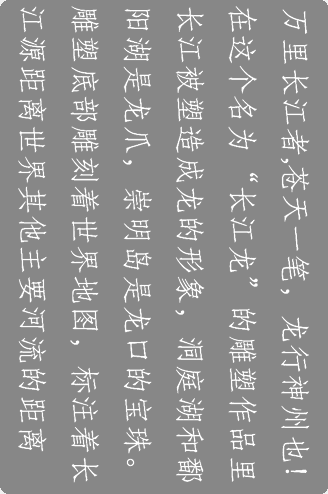 万里长江者,苍天一笔，龙行神州也!
在这个名为“长江龙”的雕塑作品里
长江被塑造成龙的形象，洞庭湖和鄱
阳湖是龙爪，崇明岛是龙口的宝珠。
雕塑底部雕刻着世界地图，标注着长
江源距离世界其他主要河流的距离